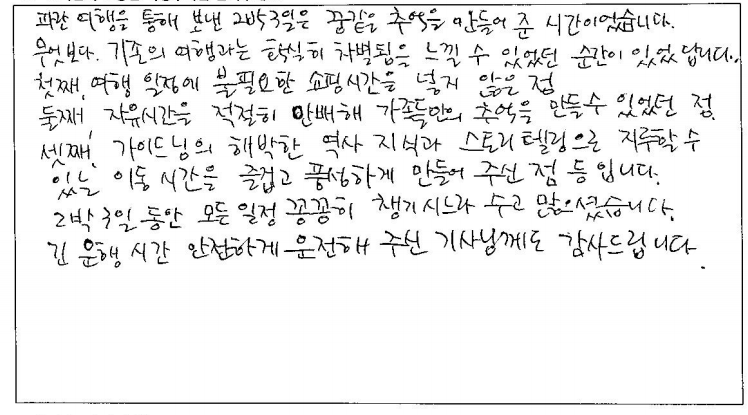 파란 여행을 통해 보낸 2박3일은 꿈같은 추억을 만들어 준 시간이었습니다.
무엇보다. 기존의 여행과는 확실히 차별됨을 느낄 수 있었던 순간이 있었답니다.
첫째, 여행 일정에 불필요한 쇼핑시간을 넣지 않은 점
둘째, 자유시간을 적절히 안배해 가족들만의 추억을 만들수 있었던 점.
셋째, 가이드님의 해박한 역사 지식과 스토리텔링으로 지루할 수
있는 이동 시간을 즐겁고 풍성하게 만들어 주신 점 등 입니다.
2박 3일 동안 모든 일정 꼼꼼히 챙기시느라 수고 많으셨습니다.
긴 운행 시간 안전하게 운전해 주신 기사님께도 감사드립니다.